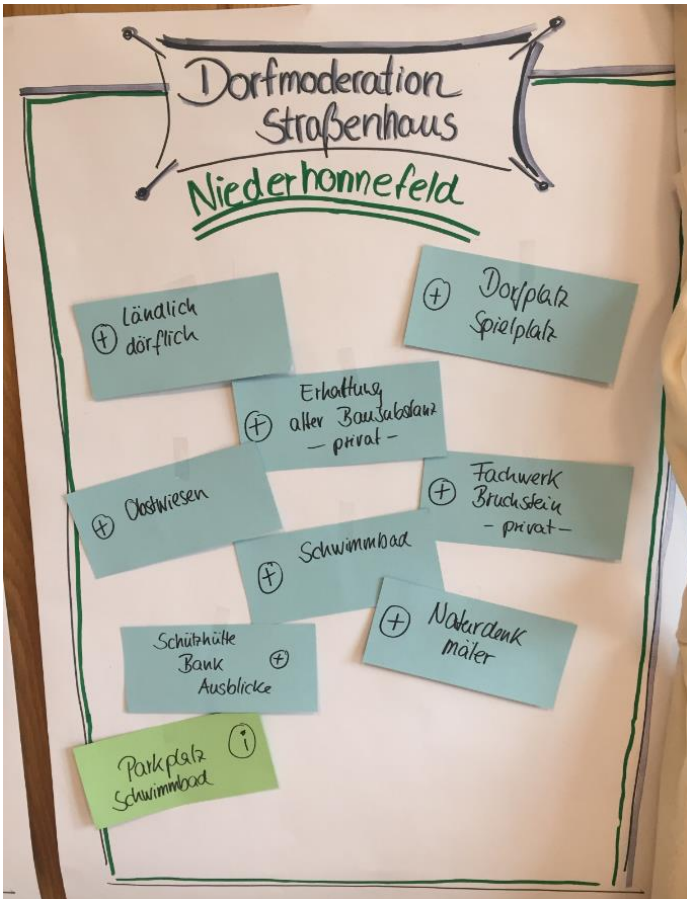 Dorfmoderation
Straßenhaus
Niederhonnefeld
+ Ländlich
dörflich
+ Dorfplatz
Spielplatz
Erhaltung
+ alter Bausubstanz
– privat –
+ Obstwiesen
+ Fachwerk
Bruchstein
– privat –
+ Schwimmbad
+ Naturdenk
mäler
Schützhütte
Bank +
Ausblicke
Parkplatz i
Schwimmbad